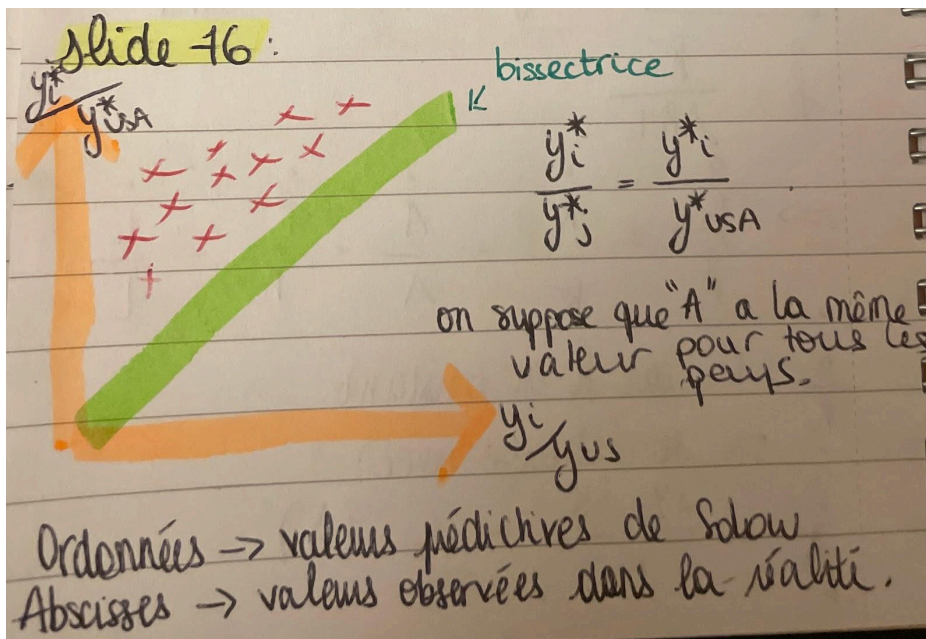 slide 16 :
yi* / y*USA
bissectrice
yi* / y*j = y*i / y*USA
on suppose que "A" a la même
valeur pour tous les
pays.
yi / yUS
Ordonnées → valeurs prédictives de Solow
Abscisses → valeurs observées dans la réalité.